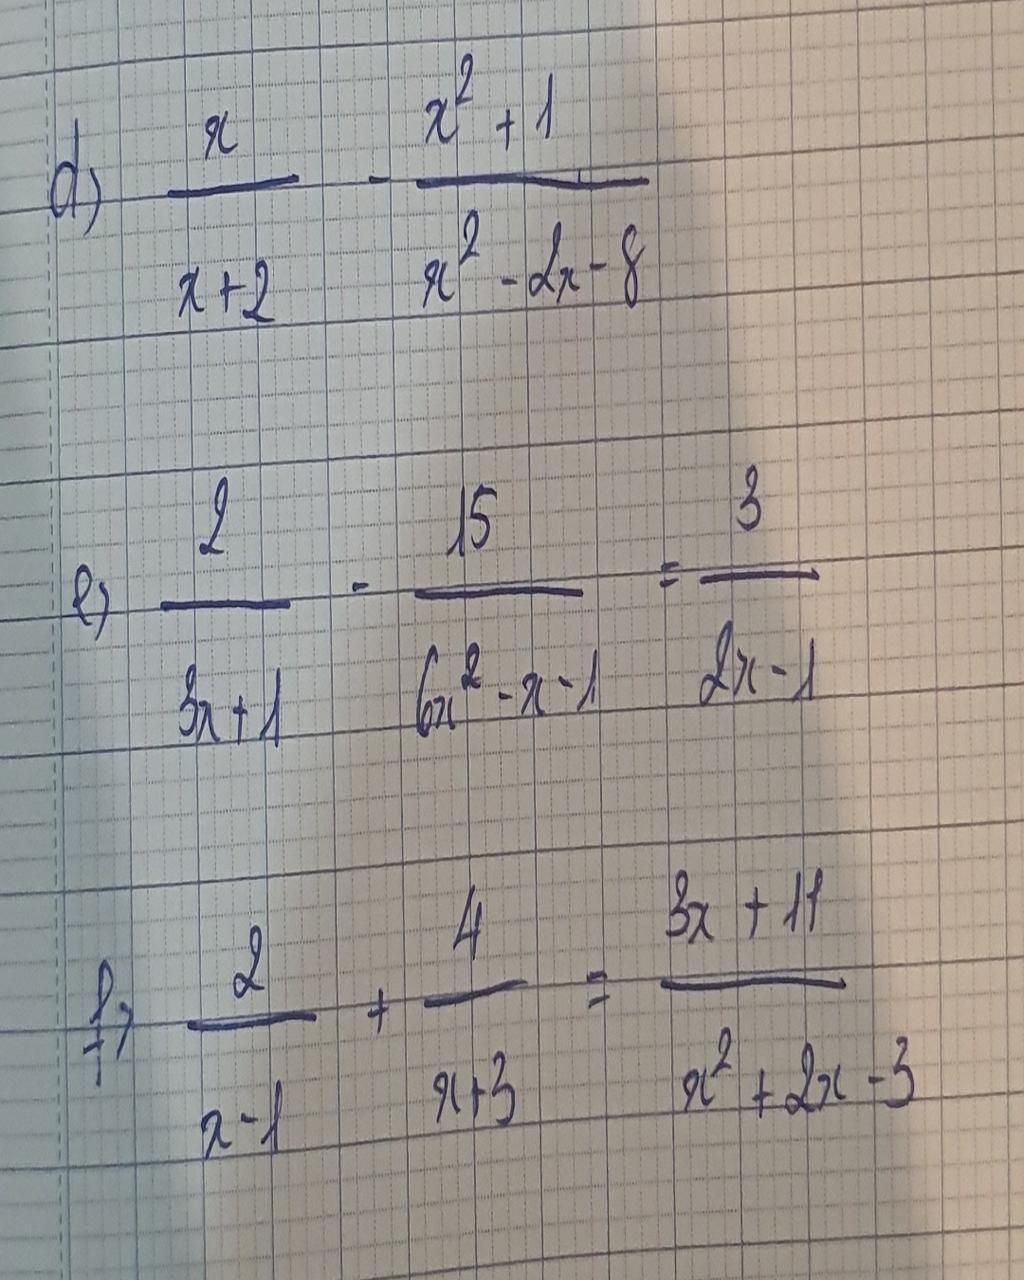 d) x/(x+2) - (x² + 1)/(x² - 2x - 8)
e) 2/(3x+1) - 15/(6x² - x - 1) = 3/(2x - 1)
f) 2/(x-1) + 4/(x+3) = (3x + 11)/(x² + 2x - 3)